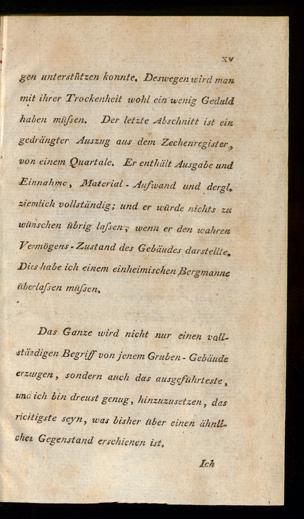 xv
gen unterstützen konnte. Deswegen wird man
mit ihrer Trockenheit wohl ein wenig Geduld
haben müſſen. Der letzte Abschnitt ist ein
gedrängter Auszug aus dem Zechenregister,
von einem Quartale. Er enthält Ausgabe und
Einnahme, Material-Aufwand und dergl.
ziemlich vollständig; und er würde nichts zu
wünschen übrig laſſen, wenn er den wahren
Vermögens-Zustand des Gebäudes darstellte.
Dies habe ich einem einheimischen Bergmanne
überlaſſen müſſen.
Das Ganze wird nicht nur einen voll-
ständigen Begriff von jenem Gruben-Gebäude
erzeugen, sondern auch das ausgeführteste,
und ich bin dreust genug, hinzuzusetzen, das
richtigste seyn, was bisher über einen ähnli-
chen Gegenstand erschienen ist.
Ich